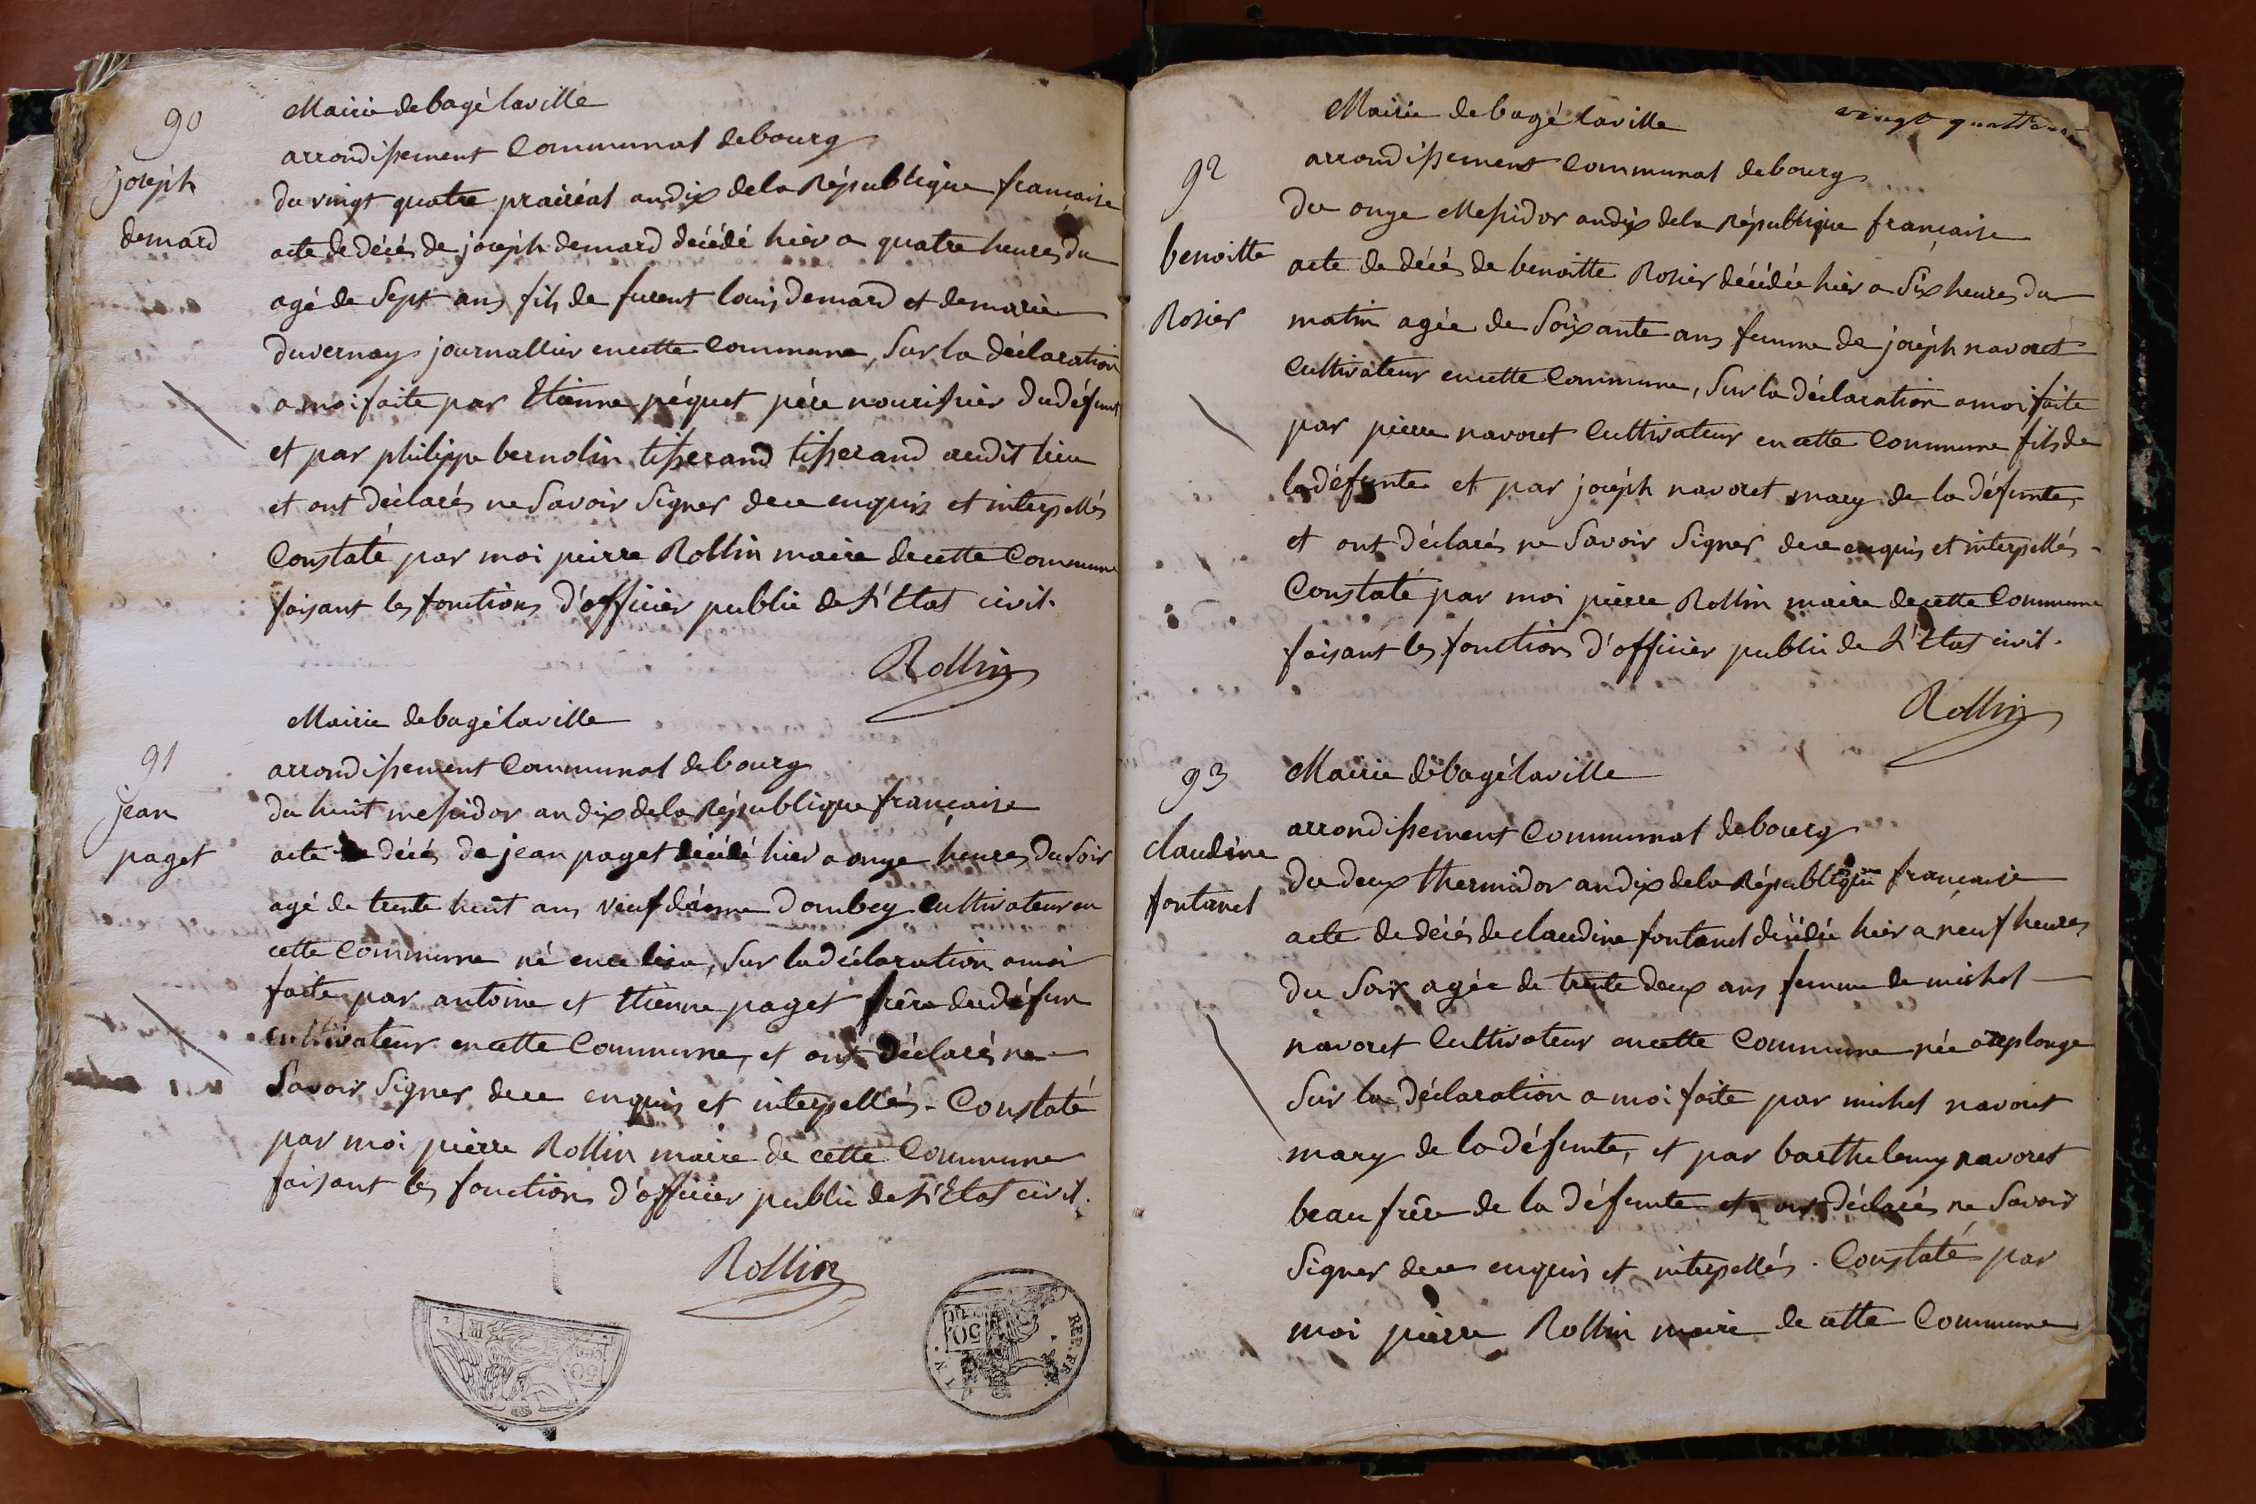 90
joseph
demard
Mairie de bagé laville
arrondissement Communal de bourg
du vingt quatre prairéal an dix de la République française
acte de décés de joseph demard décédé hier a quatre heures du
agé de Sept ans fils de furent louis demard et de marie
duvernay journallier en cette Commune, Sur la déclaration
a moi faite par Etienne péquet pére nourissier du défunt
et par philippe bernolin tisserand tisserand audit lieu
et ont déclarés ne Savoir Signer de ce enquis et interpellés
Constaté par moi pierre Rollin maire de cette Commune
faisant les fonctions d'officier public de L'Etat civil.
Rollin
91
jean
paget
Mairie de bagé laville
arrondissement Communal de bourg
du huit messidor an dix de la République française
acte de décés de jean paget décédé hier a onze heures du Soir
agé de trente huit ans veuf d'anne Dombey Cultivateur en
cette Commune né en ce lieu, Sur la déclaration a moi
faite par antoine et Etienne paget frére du défun
cultivateur en cette Commune, et ont déclarés ne
Savoir Signer de ce enquis et interpellés. Constaté
par moi pierre Rollin maire de cette Commune
faisant les fonctions d'officier public de L'Etat civil.
Rollin
REP. FRA
50
50
vingt quattre
92
benoitte
Rosier
Mairie de bagé laville
arrondissement Communal de bourg
du onze Messidor an dix de la République française
acte de décés de benoitte Rosier décédée hier a Six heures du
matin agée de Soixante ans femme de joseph navoret
Cultivateur en cette Commune, Sur la déclaration a moi faite
par pierre navoret Cultivateur en cette Commune fils de
la défunte et par joséph navoret mary de la défunte,
et ont déclarés ne Savoir Signer de ce enquis et interpellés.
Constaté par moi pierre Rollin maire de cette Commune
faisant les fonctions d'officier public de L'Etat civil.
Rollin
93
claudine
fontanel
Mairie de bagé laville
arrondissement Communal de bourg
du deux thermidor an dix de la République française
acte de décés de claudine fontanel décédée hier a neuf heures
du Soir agée de trente deux ans femme de michel
navoret Cultivateur en cette Commune née a replonge
Sur la déclaration a moi faite par michel navoret
mary de la défunte, et par barthelemy navoret
beau frére de la défunte et ont déclarés ne Savoir
Signer de ce enquis et interpellés. Constaté par
moi pierre Rollin maire de cette Commune